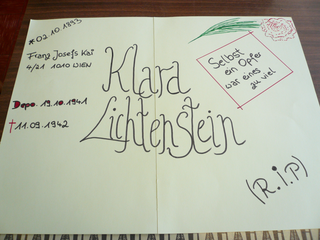 * 02.10.1893
Franz Josefs Kai
4/21 1010 WIEN
Depo. 19.10.1941
† 11.09.1942
Klara
Lichtenstein
Selbst
ein Opfer
war eines
zu viel
(R.i.P)